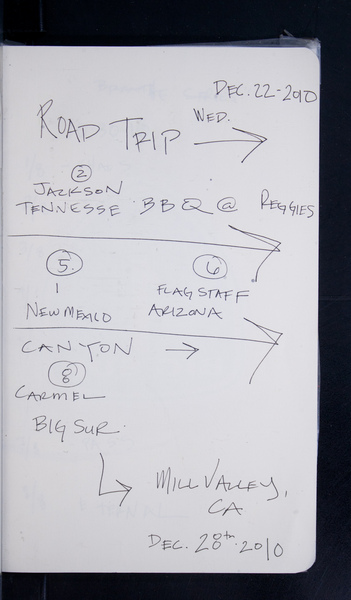 DEC. 22-2010
ROAD TRIP WED.
2
JACKSON
TENNESSE BBQ @ REGGIES
5. 6
1
NEW MEXICO FLAGSTAFF
ARIZONA
CANYON
8
CARMEL
BIG SUR.
MILL VALLEY,
CA
DEC. 28th. 2010